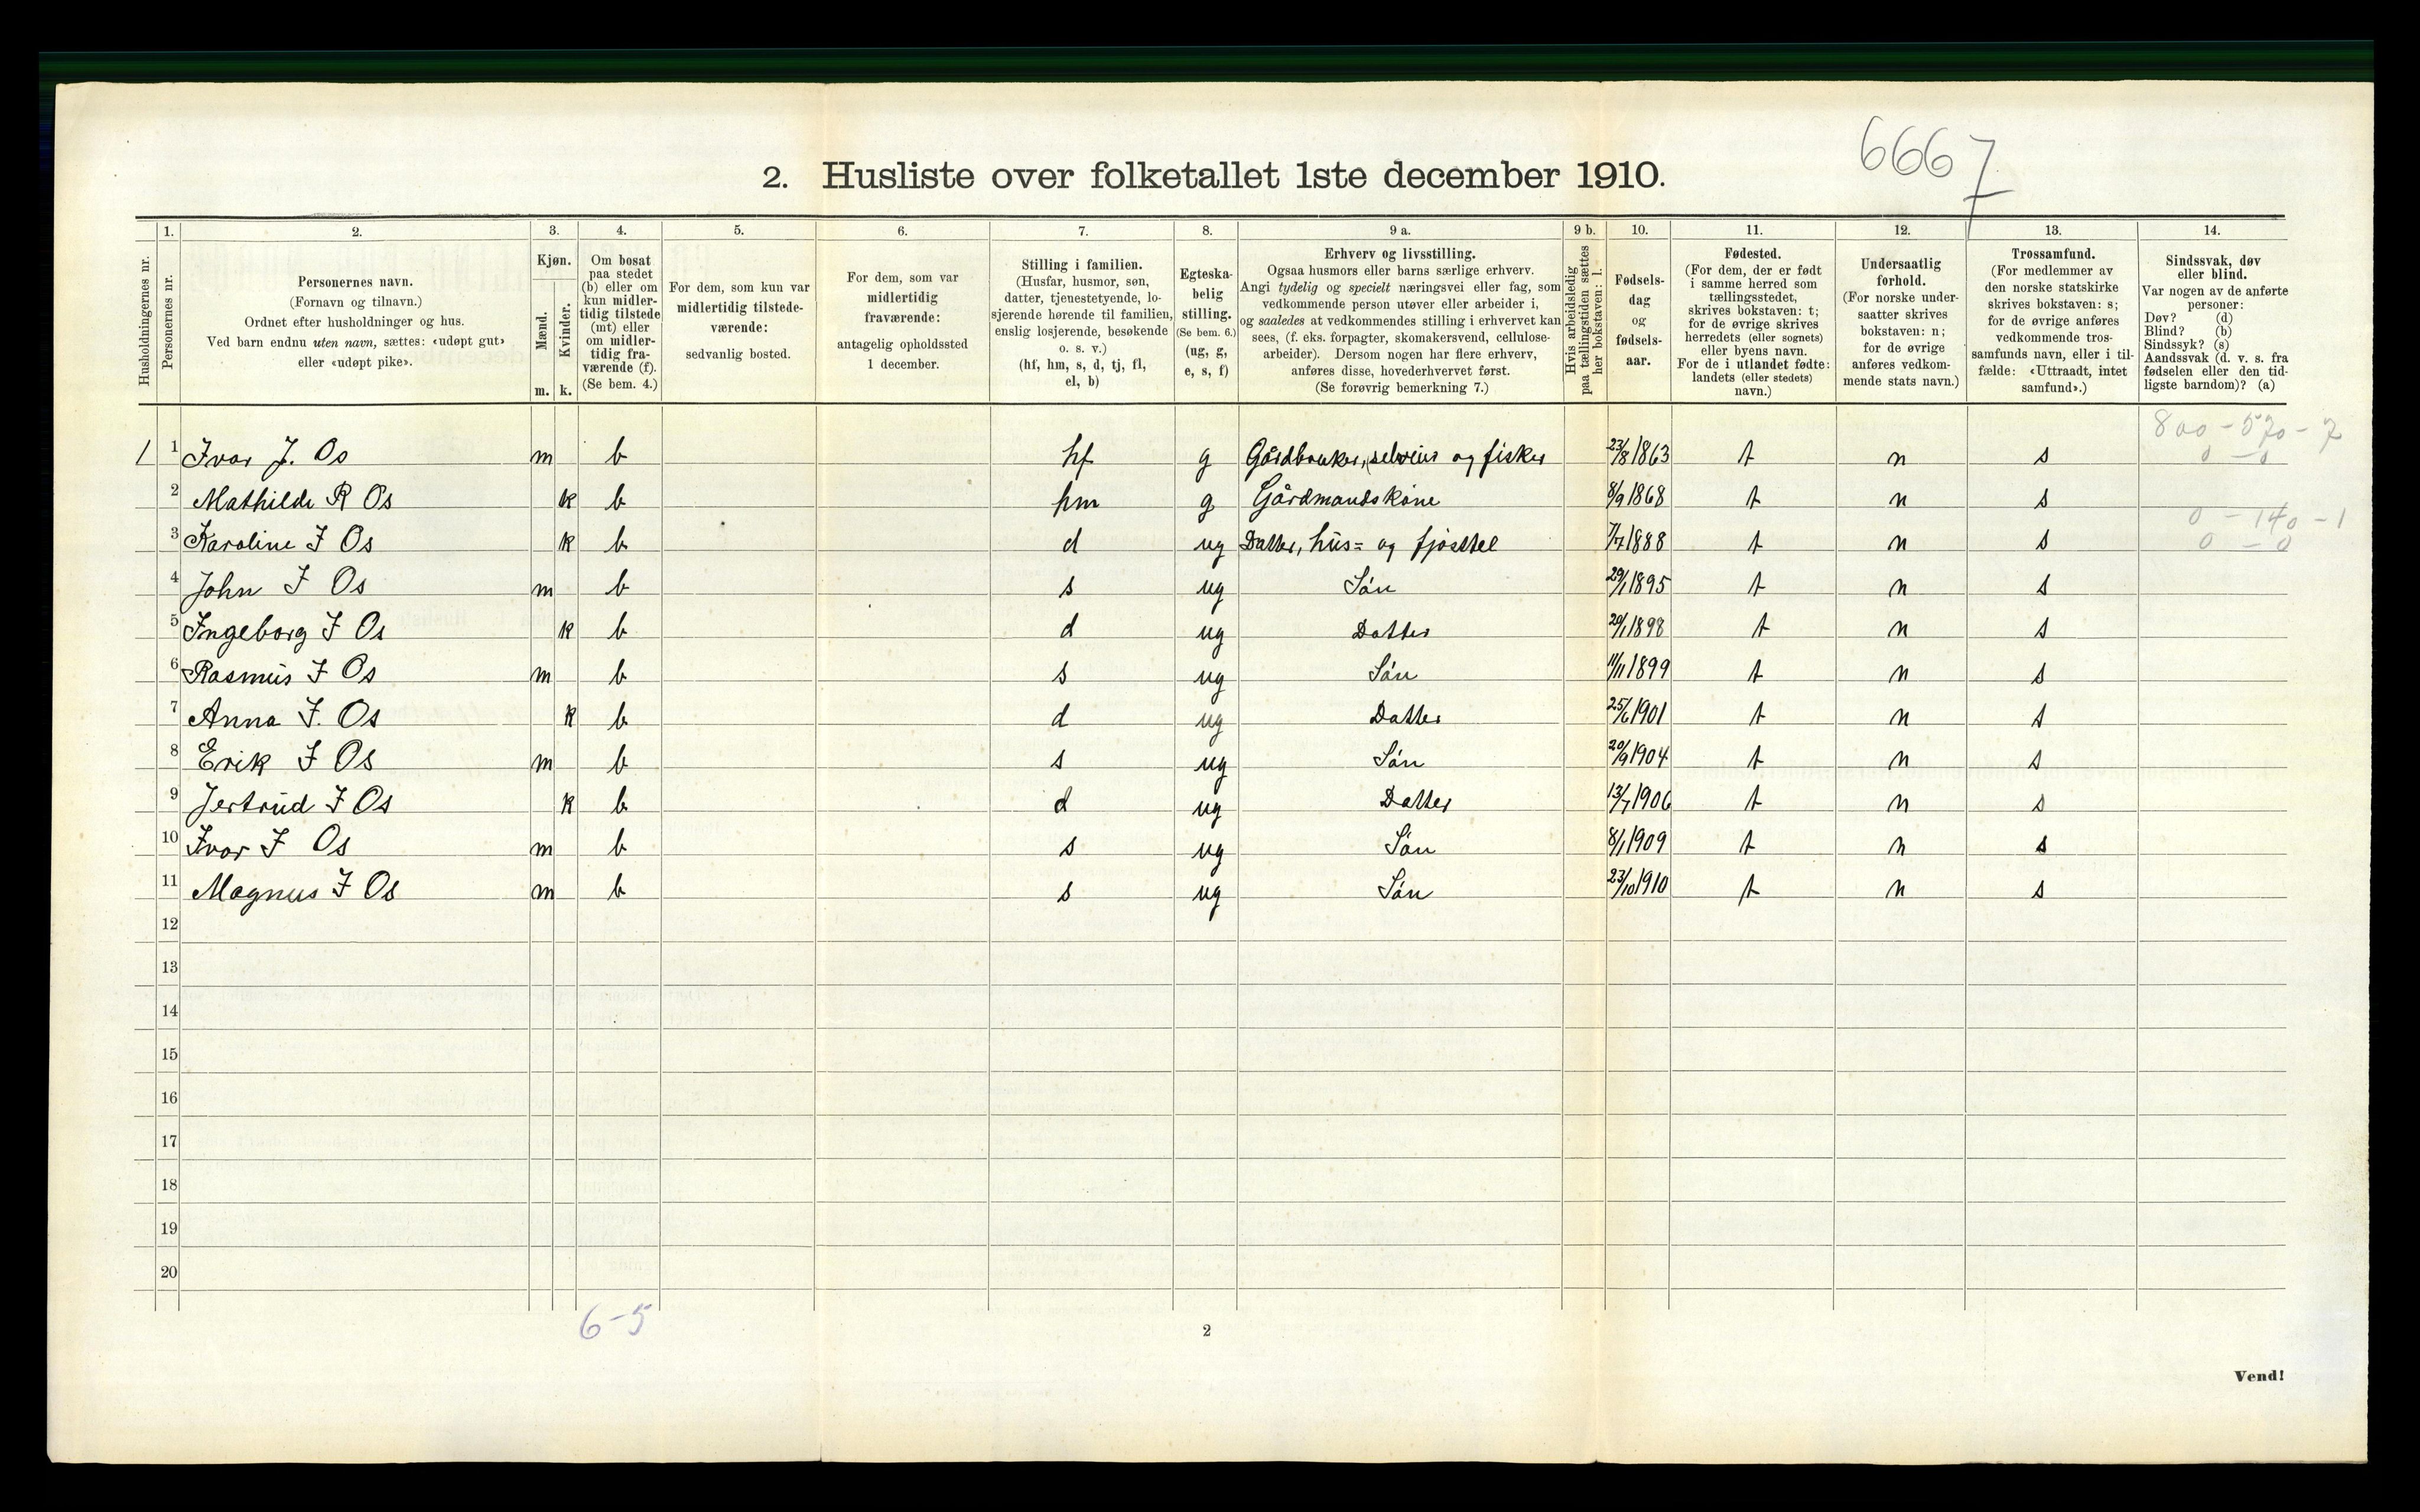 6667
2. Husliste over folketallet 1ste december 1910.
1. 2. 3. 4. 5. 6. 7. 8. 9 a. 9 b. 10. 11. 12. 13. 14.
Husholdningernes nr.
Personernes nr.
Personernes navn.
(Fornavn og tilnavn.)
Ordnet efter husholdninger og hus.
Ved barn endnu uten navn, sættes: «udøpt gut»
eller «udøpt pike».
Kjøn.
Mænd.
Kvinder.
m. k.
Om bosat
paa stedet
(b) eller om
kun midler-
tidig tilstede
(mt) eller
om midler-
tidig fra-
værende (f).
(Se bem. 4.)
For dem, som kun var
midlertidig tilstede-
værende:
sedvanlig bosted.
For dem, som var
midlertidig
fraværende:
antagelig opholdssted
1 december.
Stilling i familien.
(Husfar, husmor, søn,
datter, tjenestetyende, lo-
sjerende hørende til familien,
enslig losjerende, besøkende
o. s. v.)
(hf, hm, s, d, tj, fl,
el, b)
Egteska-
belig
stilling.
(Se bem. 6.)
(ug, g,
e, s, f)
Erhverv og livsstilling.
Ogsaa husmors eller barns særlige erhverv.
Angi tydelig og specielt næringsvei eller fag, som
vedkommende person utøver eller arbeider i,
og saaledes at vedkommendes stilling i erhvervet kan
sees, (f. eks. forpagter, skomakersvend, cellulose-
arbeider). Dersom nogen har flere erhverv,
anføres disse, hovederhvervet først.
(Se forøvrig bemerkning 7.)
Hvis arbeidsledig
paa tællingstiden sættes
her bokstaven: l.
Fødsels-
dag
og
fødsels-
aar.
Fødested.
(For dem, der er født
i samme herred som
tællingsstedet,
skrives bokstaven: t;
for de øvrige skrives
herredets (eller sognets)
eller byens navn.
For de i utlandet fødte:
landets (eller stedets)
navn.)
Undersaatlig
forhold.
(For norske under-
saatter skrives
bokstaven: n;
for de øvrige
anføres vedkom-
mende stats navn.)
Trossamfund.
(For medlemmer av
den norske statskirke
skrives bokstaven: s;
for de øvrige anføres
vedkommende tros-
samfunds navn, eller i til-
fælde: «Uttraadt, intet
samfund».)
Sindssvak, døv
eller blind.
Var nogen av de anførte
personer:
Døv? (d)
Blind? (b)
Sindssyk? (s)
Aandssvak (d. v. s. fra
fødselen eller den tid-
ligste barndom)? (a)
800 - 570 - 7
0 - 0
1 1 Ivar J. Os m b hf g Gårdbruker, selveier og fisker 23/8 1863 t n s
2 Mathilde R Os k b hm g Gårdmandskone 8/9 1868 t n s
0 - 140 - 1
0 - 0
3 Karoline I Os k b d ug Datter, hus= og fjøsstel 7/7 1888 t n s
4 John I Os m b s ug Søn 29/1 1895 t n s
5 Ingeborg I Os k b d ug Datter 20/1 1898 t n s
6 Rasmus I Os m b s ug Søn 11/11 1899 t n s
7 Anna I. Os k b d ug Datter 25/6 1901 t n s
8 Erik I Os m b s ug Søn 20/9 1904 t n s
9 Jertrud I Os k b d ug Datter 13/7 1906 t n s
10 Ivar I Os m b s ug Søn 8/1 1909 t n s
11 Magnus I Os m b s ug Søn 23/10 1910 t n s
12
13
14
15
16
17
18
19
20
6-5
2
Vend!